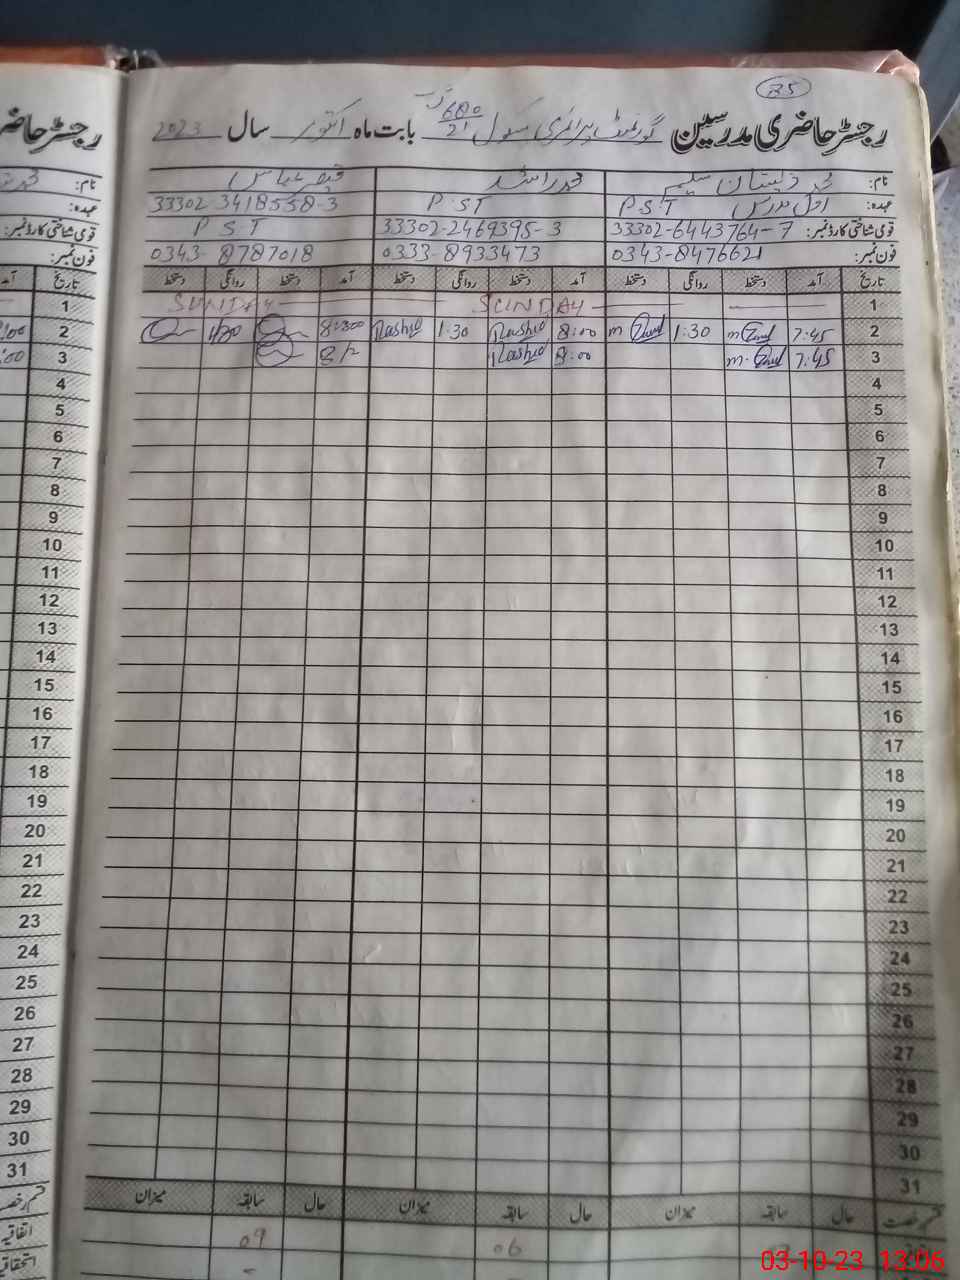 35
رجسٹر حاضری مدرسین گورنمنٹ پرائمری سکول 680/21 گ ب بابت ماہ اکتوبر سال 2023
نام: محمد ذیشان سلیم محمد راشد قیصر عباس
عہدہ: اول مدرس P.S.T P.S.T 33302-3418558-3
قومی شناختی کارڈ نمبر: 33302-6443764-7 33302-2469395-3 P S T
فون نمبر: 0343-8476621 0333-8933473 0343-8787018
تاریخ آمد دستخط روانگی دستخط آمد دستخط روانگی دستخط آمد دستخط روانگی دستخط
1 SUNDAY SUNDAY
2 7:45 1:30 8:00 Rashid 1:30 Rashid 8:300 1/30
3 7:45 8:00 Rashid
4
5
6
7
8
9
10
11
12
13
14
15
16
17
18
19
20
21
22
23
24
25
26
27
28
29
30
31
قسم رخصت حال سابقہ میزان حال سابقہ میزان حال سابقہ میزان
06 09
رجسٹر حاضر
نام:
عہدہ:
قومی شناختی کارڈ نمبر:
فون نمبر:
تاریخ
1
2
3
4
5
6
7
8
9
10
11
12
13
14
15
16
17
18
19
20
21
22
23
24
25
26
27
28
29
30
31
قسم رخصت
اتفاقیہ
استحقاقیہ
03-10-23 13:06